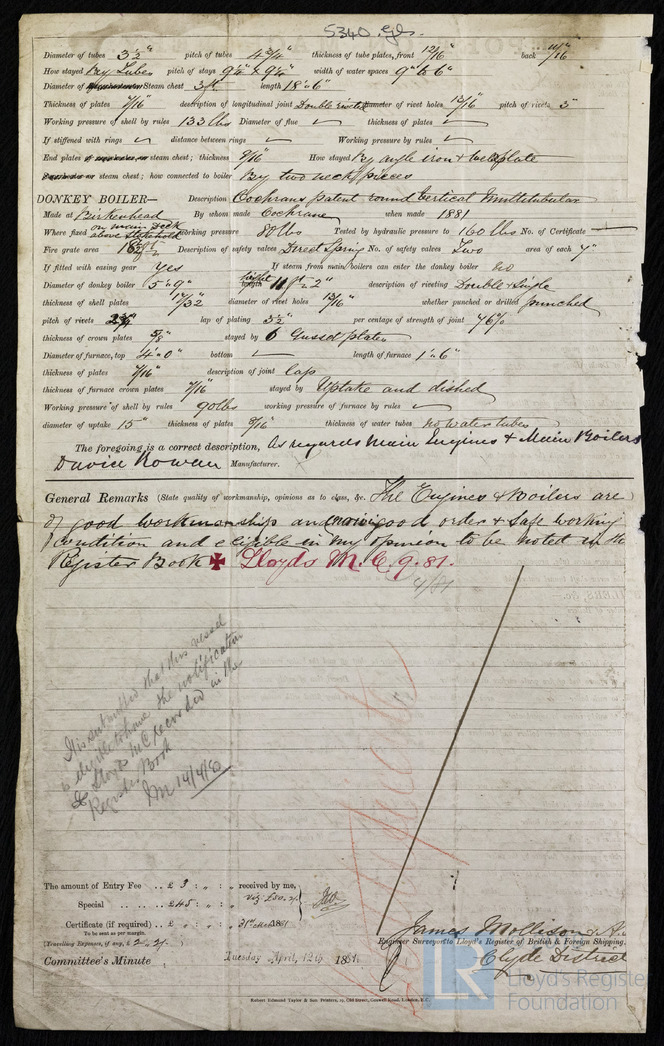 5340 Gls.
Diameter of tubes 3½" pitch of tubes 4¾" thickness of tube plates, front 12/16" back 11/16"
How stayed By Tubes pitch of stays 9¼" x 9¼" width of water spaces 9" to 6"
Diameter of Steam chest 3 ft length 18'.6"
Thickness of plates 7/16" description of longitudinal joint Double riveted diameter of rivet holes 13/16" pitch of rivets 3"
Working pressure of shell by rules 133 lbs Diameter of flue ✓ thickness of plates ✓
If stiffened with rings ✓ distance between rings ✓ Working pressure by rules ✓
End plates of steam chest; thickness 9/16" How stayed By angle iron & weldplate
or steam chest; how connected to boiler By two neck pieces
DONKEY BOILER— Description Cochrans patent round Vertical Multitubular
Made at Birkenhead By whom made Cochran when made 1881
Where fixed on main Deck above Stokehold working pressure 80 lbs Tested by hydraulic pressure to 160 lbs No. of Certificate —
Fire grate area Description of safety valves Direct Spring No. of safety valves Two area of each 7"
If fitted with easing gear Yes If steam from main boilers can enter the donkey boiler no
Diameter of donkey boiler 5'.9" height length 11 ft 2" description of riveting Double & Single
thickness of shell plates 17/32" diameter of rivet holes 13/16" whether punched or drilled punched
pitch of rivets lap of plating 3½" per centage of strength of joint 76%
thickness of crown plates 5/8" stayed by 6 Gusset plates
Diameter of furnace, top 4'.0" bottom ✓ length of furnace 1'.6"
thickness of plates 7/16" description of joint lap
thickness of furnace crown plates 7/16" stayed by Uptake and dished
Working pressure of shell by rules 90 lbs working pressure of furnace by rules ✓
diameter of uptake 15" thickness of plates 9/16" thickness of water tubes no water tubes
The foregoing is a correct description, As regards Main Engines & Main Boilers
David Rowan Manufacturer.
General Remarks (State quality of workmanship, opinions as to class, &c. The Engines & Boilers are
of good workmanship and now in good order & safe working
condition and eligible in my opinion to be noted in the
Register Book ✠ Lloyds M.C. 9.81.
4/81
It is submitted that this vessel
is eligible to have the notification
✠ Lloyds MC recorded in the
Register Book
14/4/
The amount of Entry Fee .. £ 3 : „ : „ received by me,
Special .. .. £45 : „ : „ viz £50.2/.
Certificate (if required) .. £ „ : „ : „ 31st Mch 1881
To be sent as per margin.
(Travelling Expenses, if any, £ 2.2/.)
James Mollison
Engineer Surveyor to Lloyd's Register of British & Foreign Shipping.
Clyde District
Committee's Minute Tuesday April 12th 1881.
Robert Edmund Taylor & Son Printers, 19, Old Street, Goswell Road, London, E.C.
LR
Lloyd's Register
Foundation